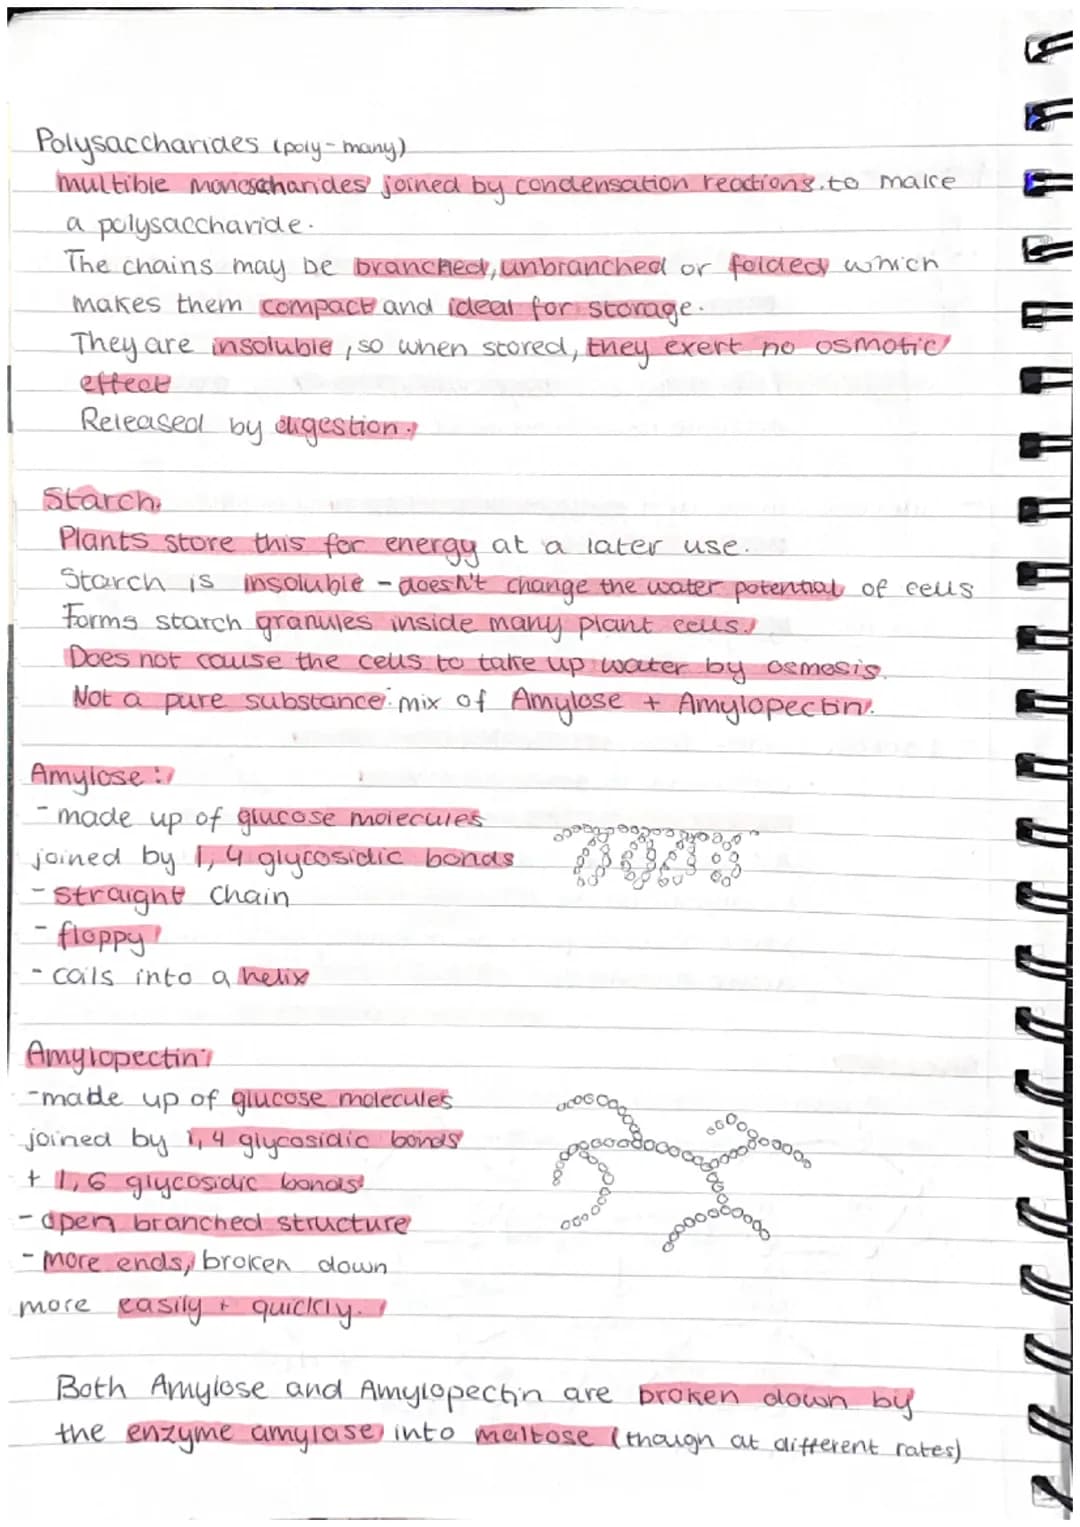 Polysaccharides (poly-many)
multible monosacharides joined by condensation reactions. to make
a polysaccharide.
The chains may be branched, unbranched or folded which
makes them compact and ideal for storage.
They are insoluble, so when stored, they exert no osmotic
effect
Released by digestion.
Starch.
Plants store this for energy at a later use.
Starch is insoluble - doesn't change the water potential of cells
Forms starch granules inside many plant cells.
Does not cause the cells to take up water by osmosis.
Not a pure substance: mix of Amylose + Amylopectin.
Amylose:
- made up of glucose molecules
joined by 1,4 glycosidic bonds
- straight chain
- floppy
- coils into a helix
Amylopectin:
- made up of glucose molecules
joined by 1,4 glycosidic bonds
+ 1,6 glycosidic bonds
- open branched structure
- more ends, broken down
more easily + quickly.
Both Amylose and Amylopectin are broken down by
the enzyme amylase into maltose (though at different rates)